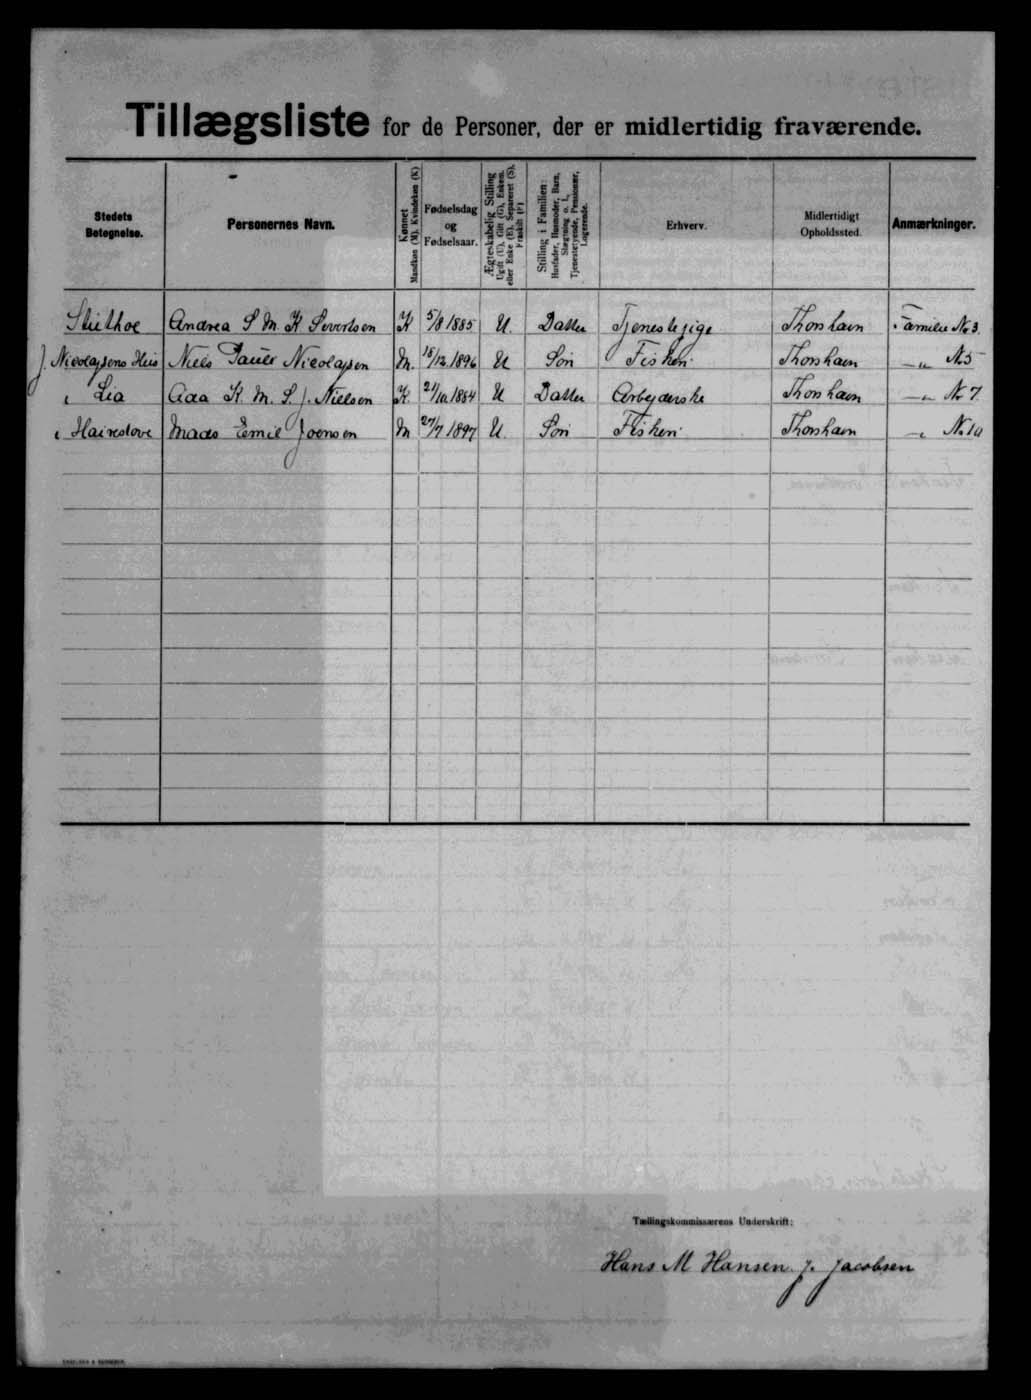 Tillægsliste for de Personer, der er midlertidig fraværende.
Stedets Betegnelse.
Personernes Navn.
Kønnet Mandkøn (M). Kvindekøn (K)
Fødselsdag og Fødselsaar.
Ægteskabelig Stilling Ugift (U), Gift (G), Enkem. eller Enke (E), Separeret (S), Fraskilt (F)
Stilling i Familien: Husfader, Husmoder, Barn, Slægtning o. l., Tjenestetyende, Pensionær, Logerende.
Erhverv.
Midlertidigt Opholdssted.
Anmærkninger.
Andrea S M. K Sivertsen K 5/8 1885 U. Datter Tjenestepige Thorshavn Familie Nr 3.
J. Nicolajsens Hus Niels Nicolajsen M. 18/12 1896 U Søn Fiskeri Thorshavn — " — Nr 5
" Lia Ada K. M. S. J. Nielsen K. 21/10 1884 U Datter Arbejderske Thorshavn — " — Nr 7.
Mads Emil Joensen M 27/7 1897 U. Søn Fiskeri Thorshavn — " Nr 10
Tællingskommissærens Underskrift:
Hans M Hansen. J. Jacobsen